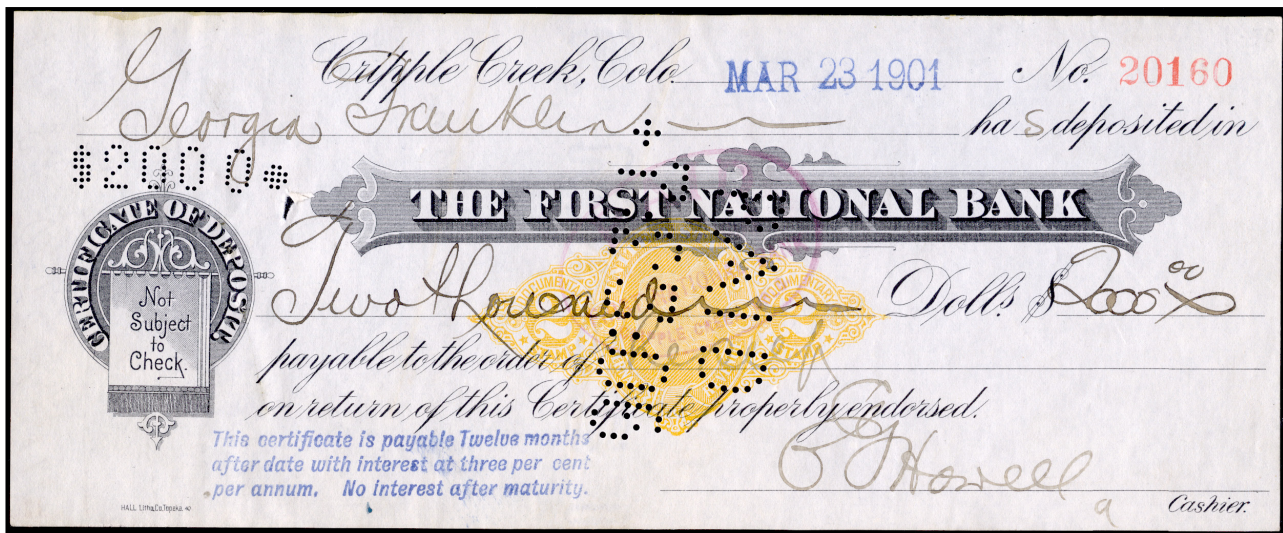 Cripple Creek, Colo. MAR 23 1901 No. 20160
Georgia Franklin has deposited in
$2000*
THE FIRST NATIONAL BANK
CERTIFICATE OF DEPOSIT
Not
Subject
to
Check.
Two thousand Dolls. $2000 00
payable to the order of
on return of this Certificate properly endorsed.
This certificate is payable Twelve months
after date with interest at three per cent
per annum. No interest after maturity.
Howell
HALL Litho. Co. Topeka
a Cashier.